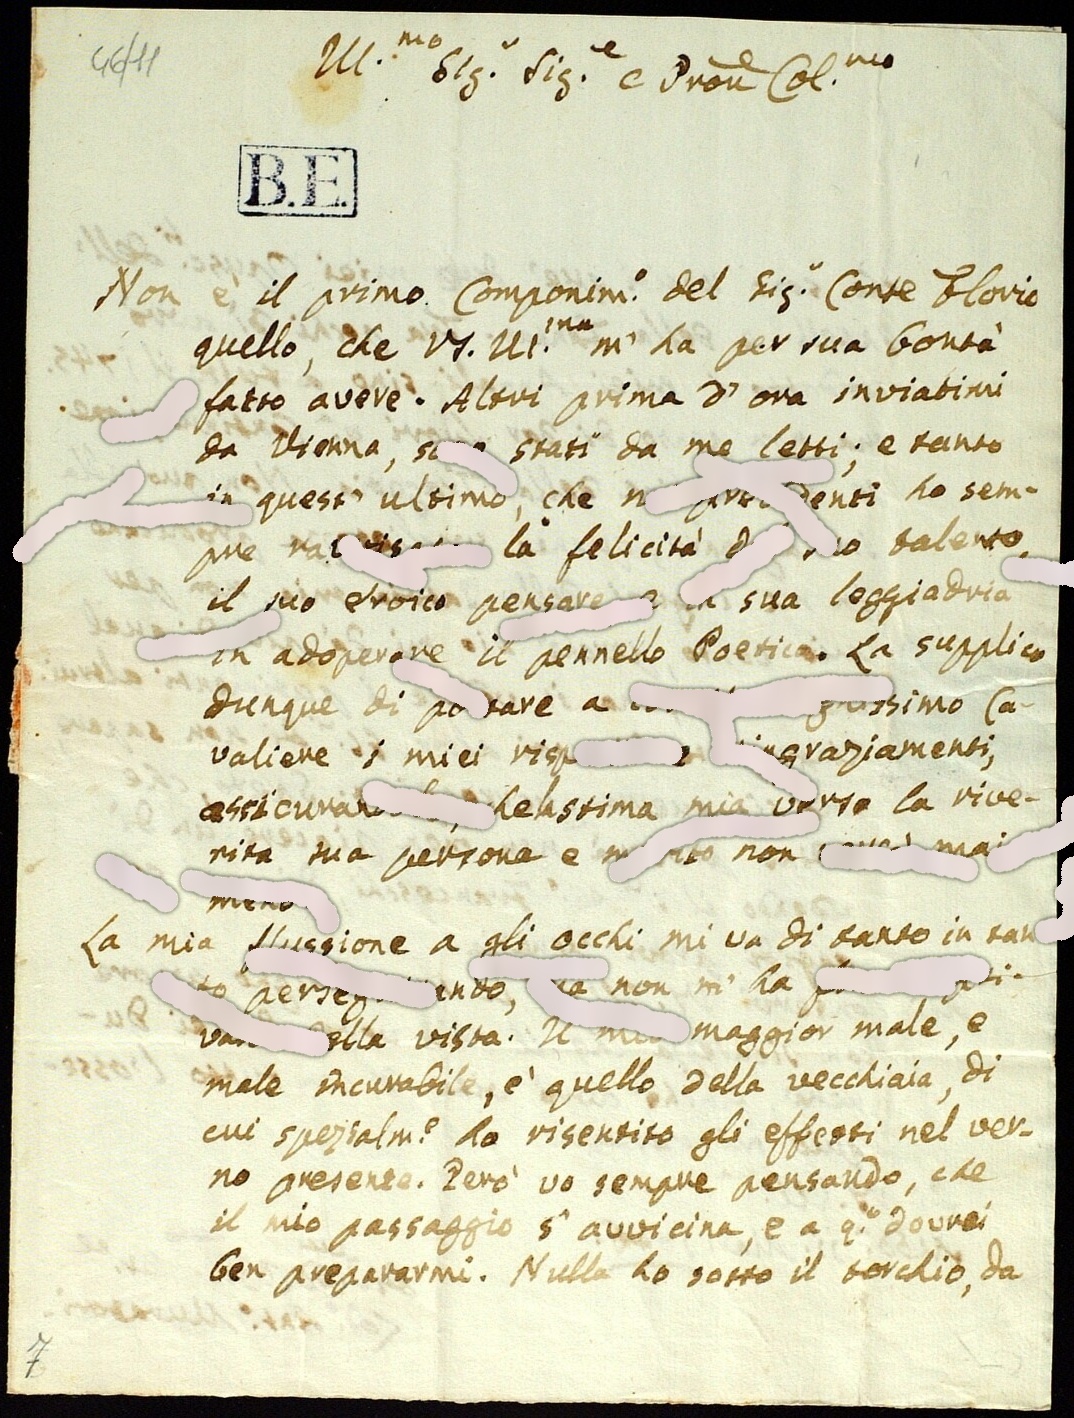 46/11
Ill.mo Sig.r Sig.e e Pron Col.mo
B.E.
Non è il primo Componim.o del Sig.r Conte Florio
quello, che VS. Ill.ma m' ha per sua bontà
fatto avere. Altri prima d' ora inviatimi
da Vienna, stati da me letti; e tanto
in quest' ultimo, che ho sem-
pre la felicità talento,
il suo eroico pensare e la sua leggiadria
in adoperare il pennello Poetico. La supplico
dunque di portare a Ca-
valiere i miei ringraziamenti,
stima mia verso la rive-
rita sua persona e non mai
meno
La mia flussione a gli occhi mi va di tanto in tan
to ma non m' ha pri-
della vista. Il maggior male, e
male incurabile, e' quello della vecchiaia, di
cui spezialm.e ho risentito gli effetti nel ver-
no presente. Però vo sempre pensando, che
il mio passaggio s' avvicina, e a q.o dovrei
ben prepararmi. Nulla ho sotto il torchio, da
7